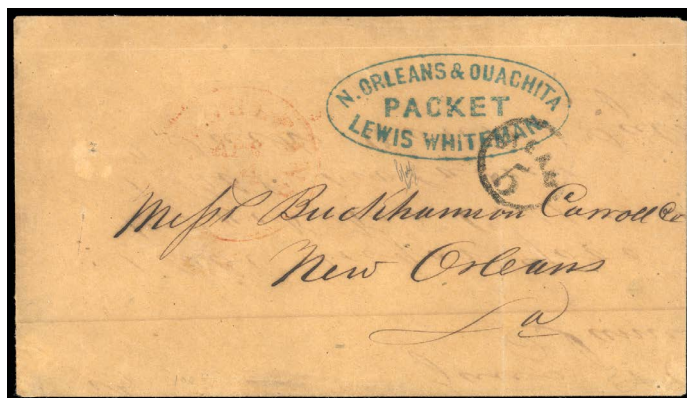 N. ORLEANS & OUACHITA
PACKET
LEWIS WHITEMAN
STEAM
5
Messrs Buckhannon Carroll & Co
New Orleans
La